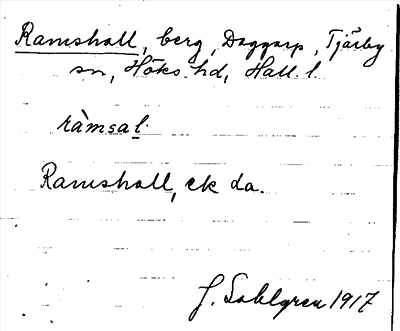 Ramshall, berg, Daggarp, Tjärby
sn, Höks hd, Hall. l.
ràmsal
Ramshall, ek da.
J. Sahlgren 1917